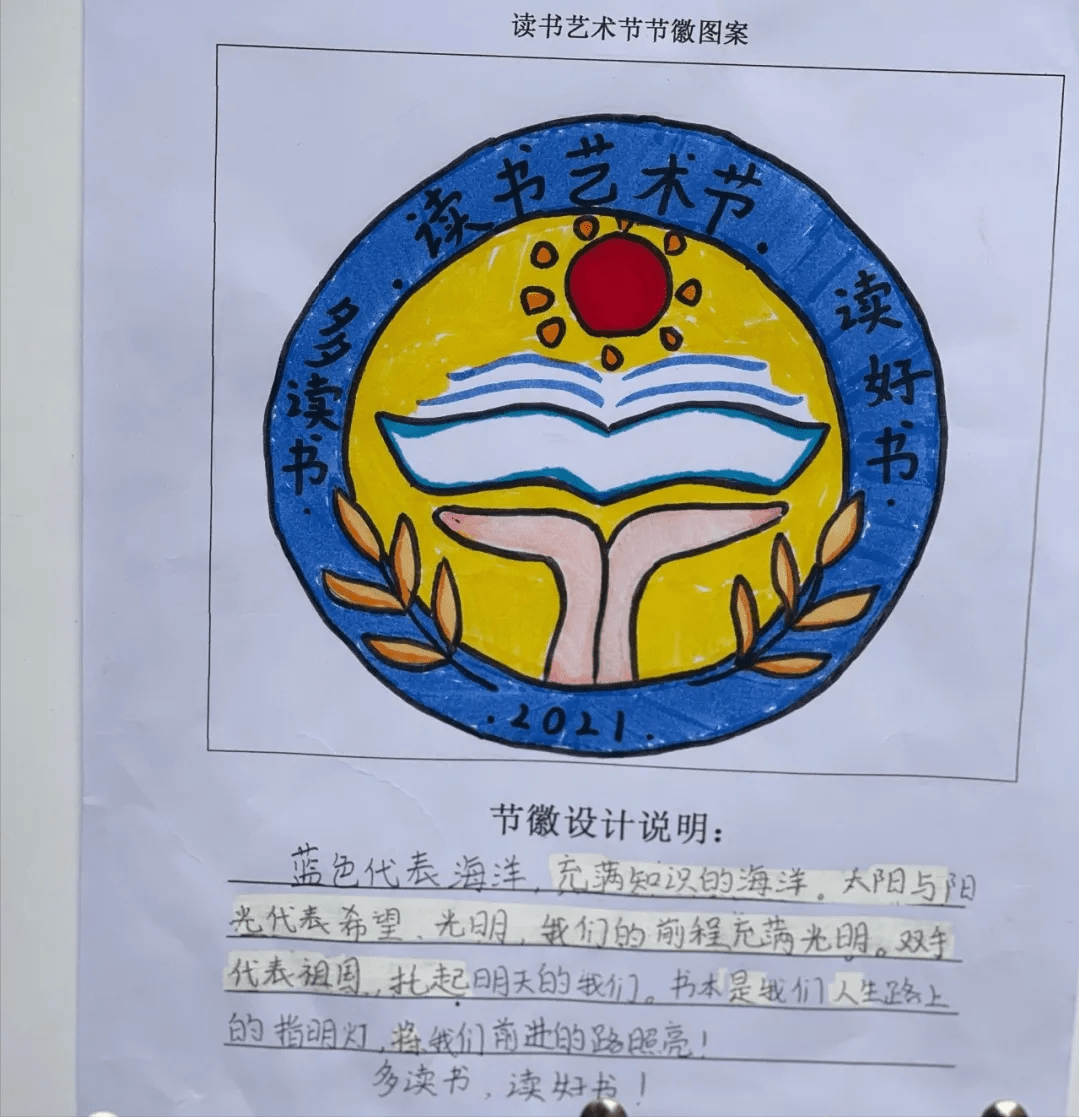 读书艺术节节徽图案
·读书艺术节·
多读书·
读好书·
·2021·
节徽设计说明：
蓝色代表海洋，充满知识的海洋。太阳与阳
光代表希望、光明，我们的前程充满光明。双手
代表祖国，托起明天的我们。书本是我们人生路上
的指明灯，将我们前进的路照亮！
多读书，读好书！